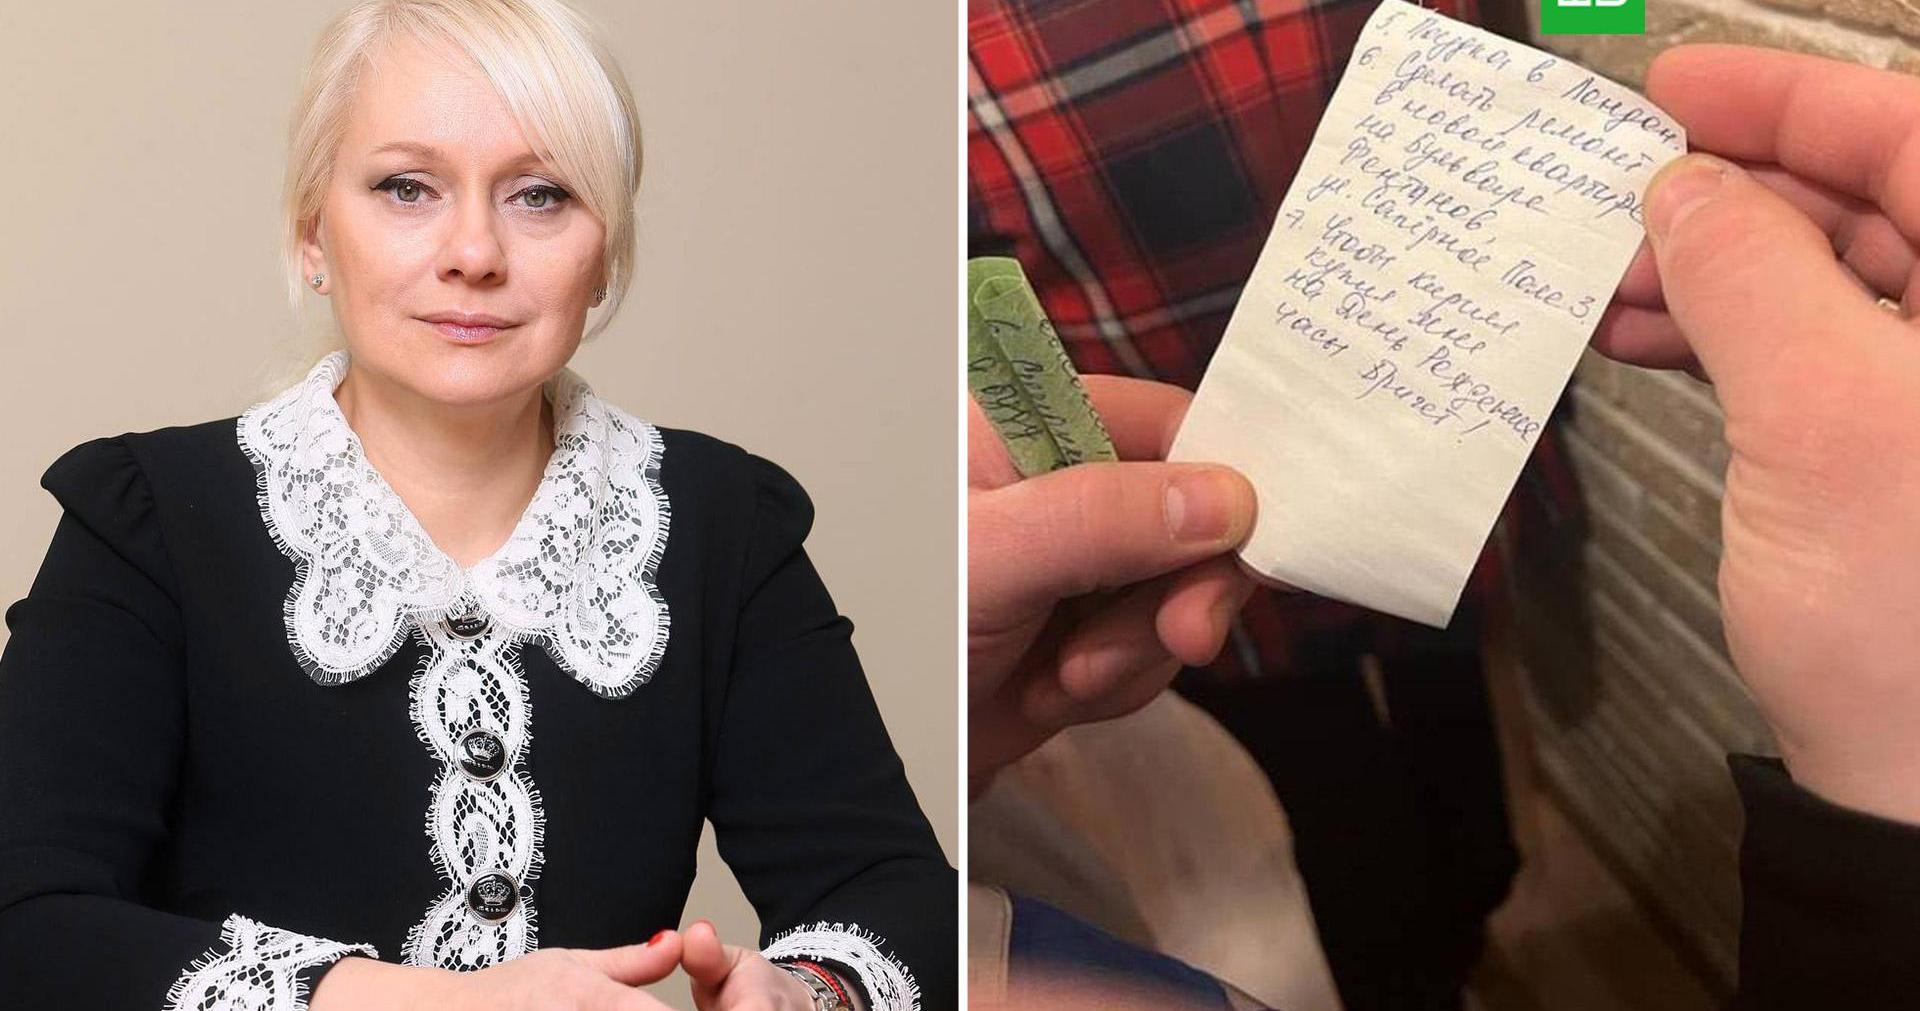 5. Поездка в Лондон.
6. Сделать ремонт
в новой квартире
на бульваре
Фонтанов,
ул. Сапёрное Поле 3.
7. Чтобы Кирилл
купил мне
на День Рождение
часы Бригет!